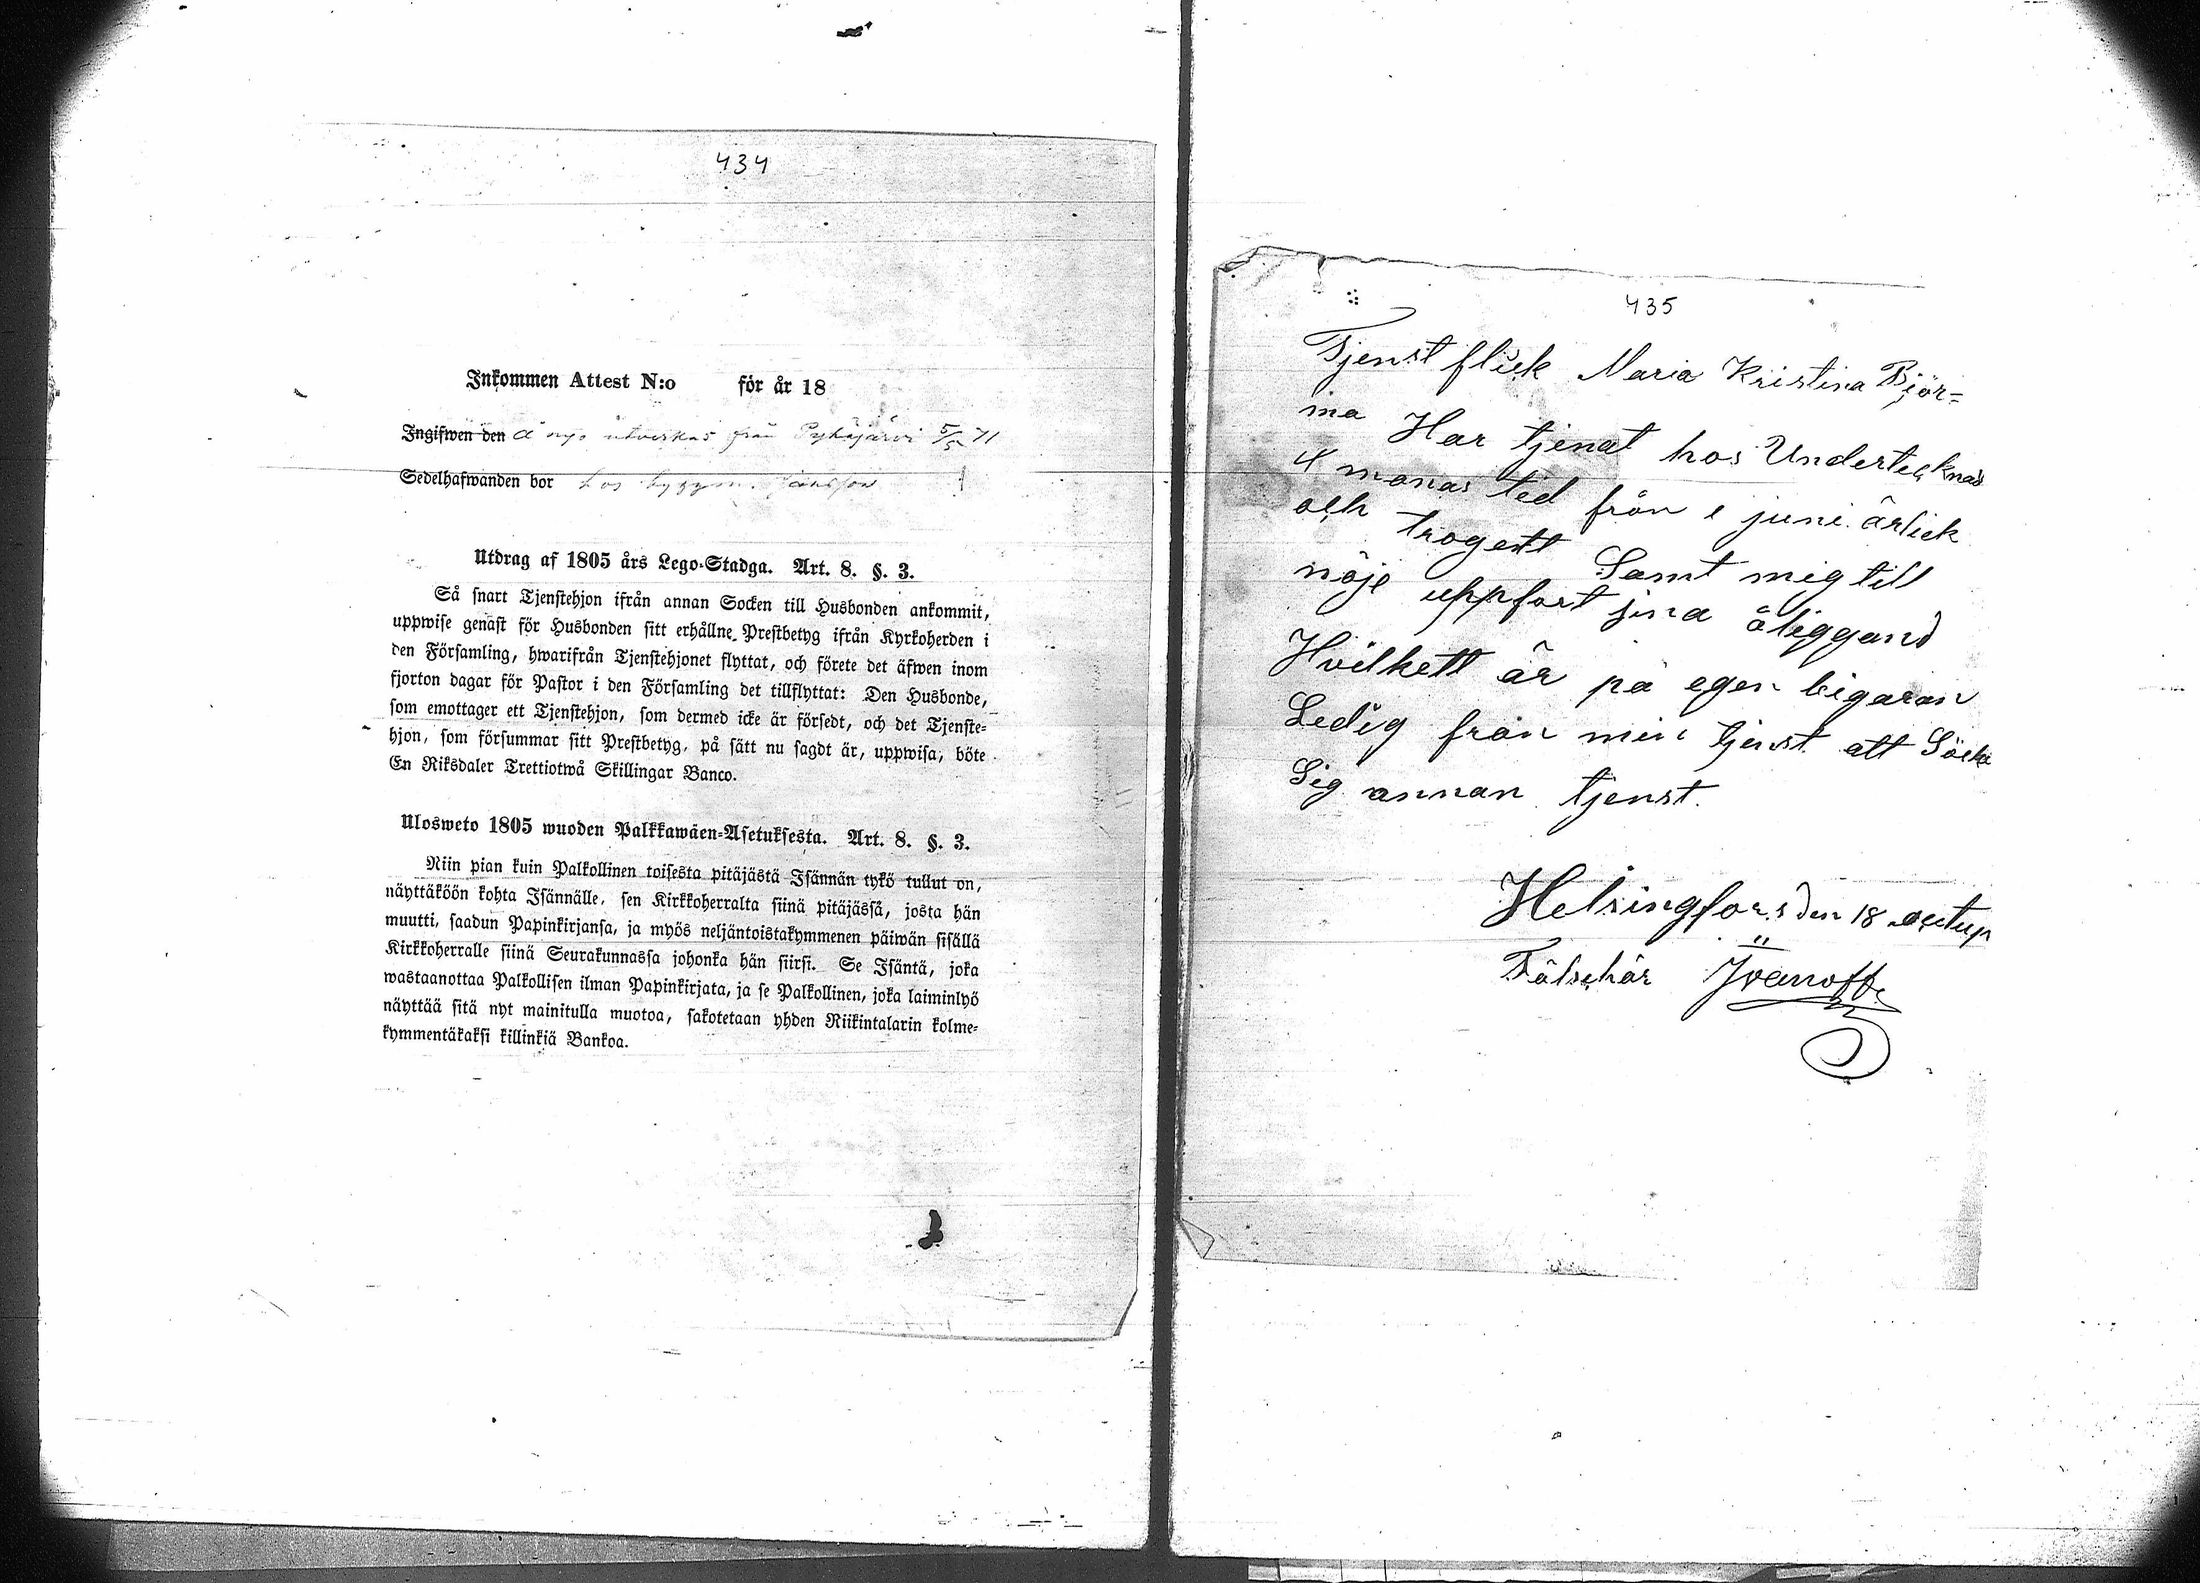 434
Inkommen Attest N:o för år 18
Ingifwen den å nyo utverkas från Pyhäjärvi 5/5 71
Sedelhafwanden bor hos byggm. Jansson
Utdrag af 1805 års Lego-Stadga. Art. 8. §. 3.
Så snart Tjenstehjon ifrån annan Socken till Husbonden ankommit,
uppwise genast för Husbonden sitt erhållne Prestbetyg ifrån Kyrkoherden i
den Församling, hwarifrån Tjenstehjonet flyttat, och förete det äfwen inom
fjorton dagar för Pastor i den Församling det tillflyttat: Den Husbonde,
som emottager ett Tjenstehjon, som dermed icke är försedt, och det Tjenste-
hjon, som försummar sitt Prestbetyg, på sätt nu sagdt är, uppwisa, böte
En Riksdaler Trettiotwå Skillingar Banco.
Ulosweto 1805 wuoden Palkkawäen-Asetuksesta. Art. 8. §. 3.
Niin pian kuin Palkollinen toisesta pitäjästä Isännän tykö tullut on,
näyttäköön kohta Isännälle, sen Kirkkoherralta siinä pitäjässä, josta hän
muutti, saadun Papinkirjansa, ja myös neljäntoistakymmenen päiwän sisällä
Kirkkoherralle siinä Seurakunnassa johonka hän siirsi. Se Isäntä, joka
wastaanottaa Palkollisen ilman Papinkirjata, ja se Palkollinen, joka laiminlyö
näyttää sitä nyt mainitulla muotoa, sakotetaan yhden Riikintalarin kolme-
kymmentäkaksi killinkiä Bankoa.
435
Tjenst flick Maria Kristina Björ=
ina Har tjenat hos Undertecknad
4 monas tid från 1 juni ärlick
och trogett Samt mig till
nöje uppfört sina åliggand
Hvilkett är på egen begäran
Ledig från min tjenst att Söcka
Sig annan tjenst.
Helsingfors den 18 octup
Fältschär Ivanoff